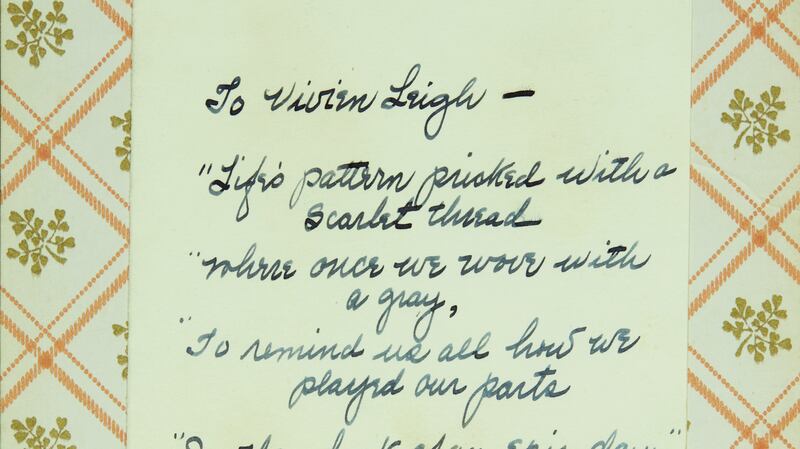 To Vivien Leigh —
"Life's pattern pricked with a
scarlet thread
"where once we wove with
a gray,
"To remind us all how we
played our parts